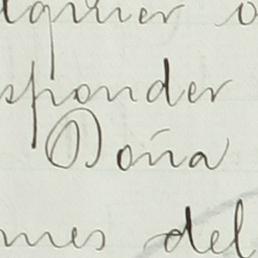 lquier o
sponder
Doña
mes del